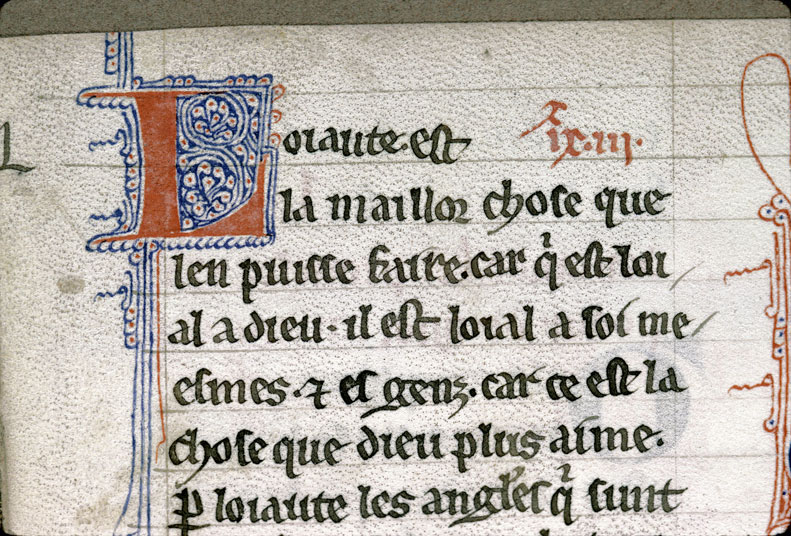 Loiaute. est
ix. iii.
la maillor chose que
len puisse faire. car q̇ est loi
al a dieu. il est loial a soi me
esmes. ⁊ es genz. car ce est la
chose que dieu plus aime.
ꝑ loiaute les angles q̇ sunt